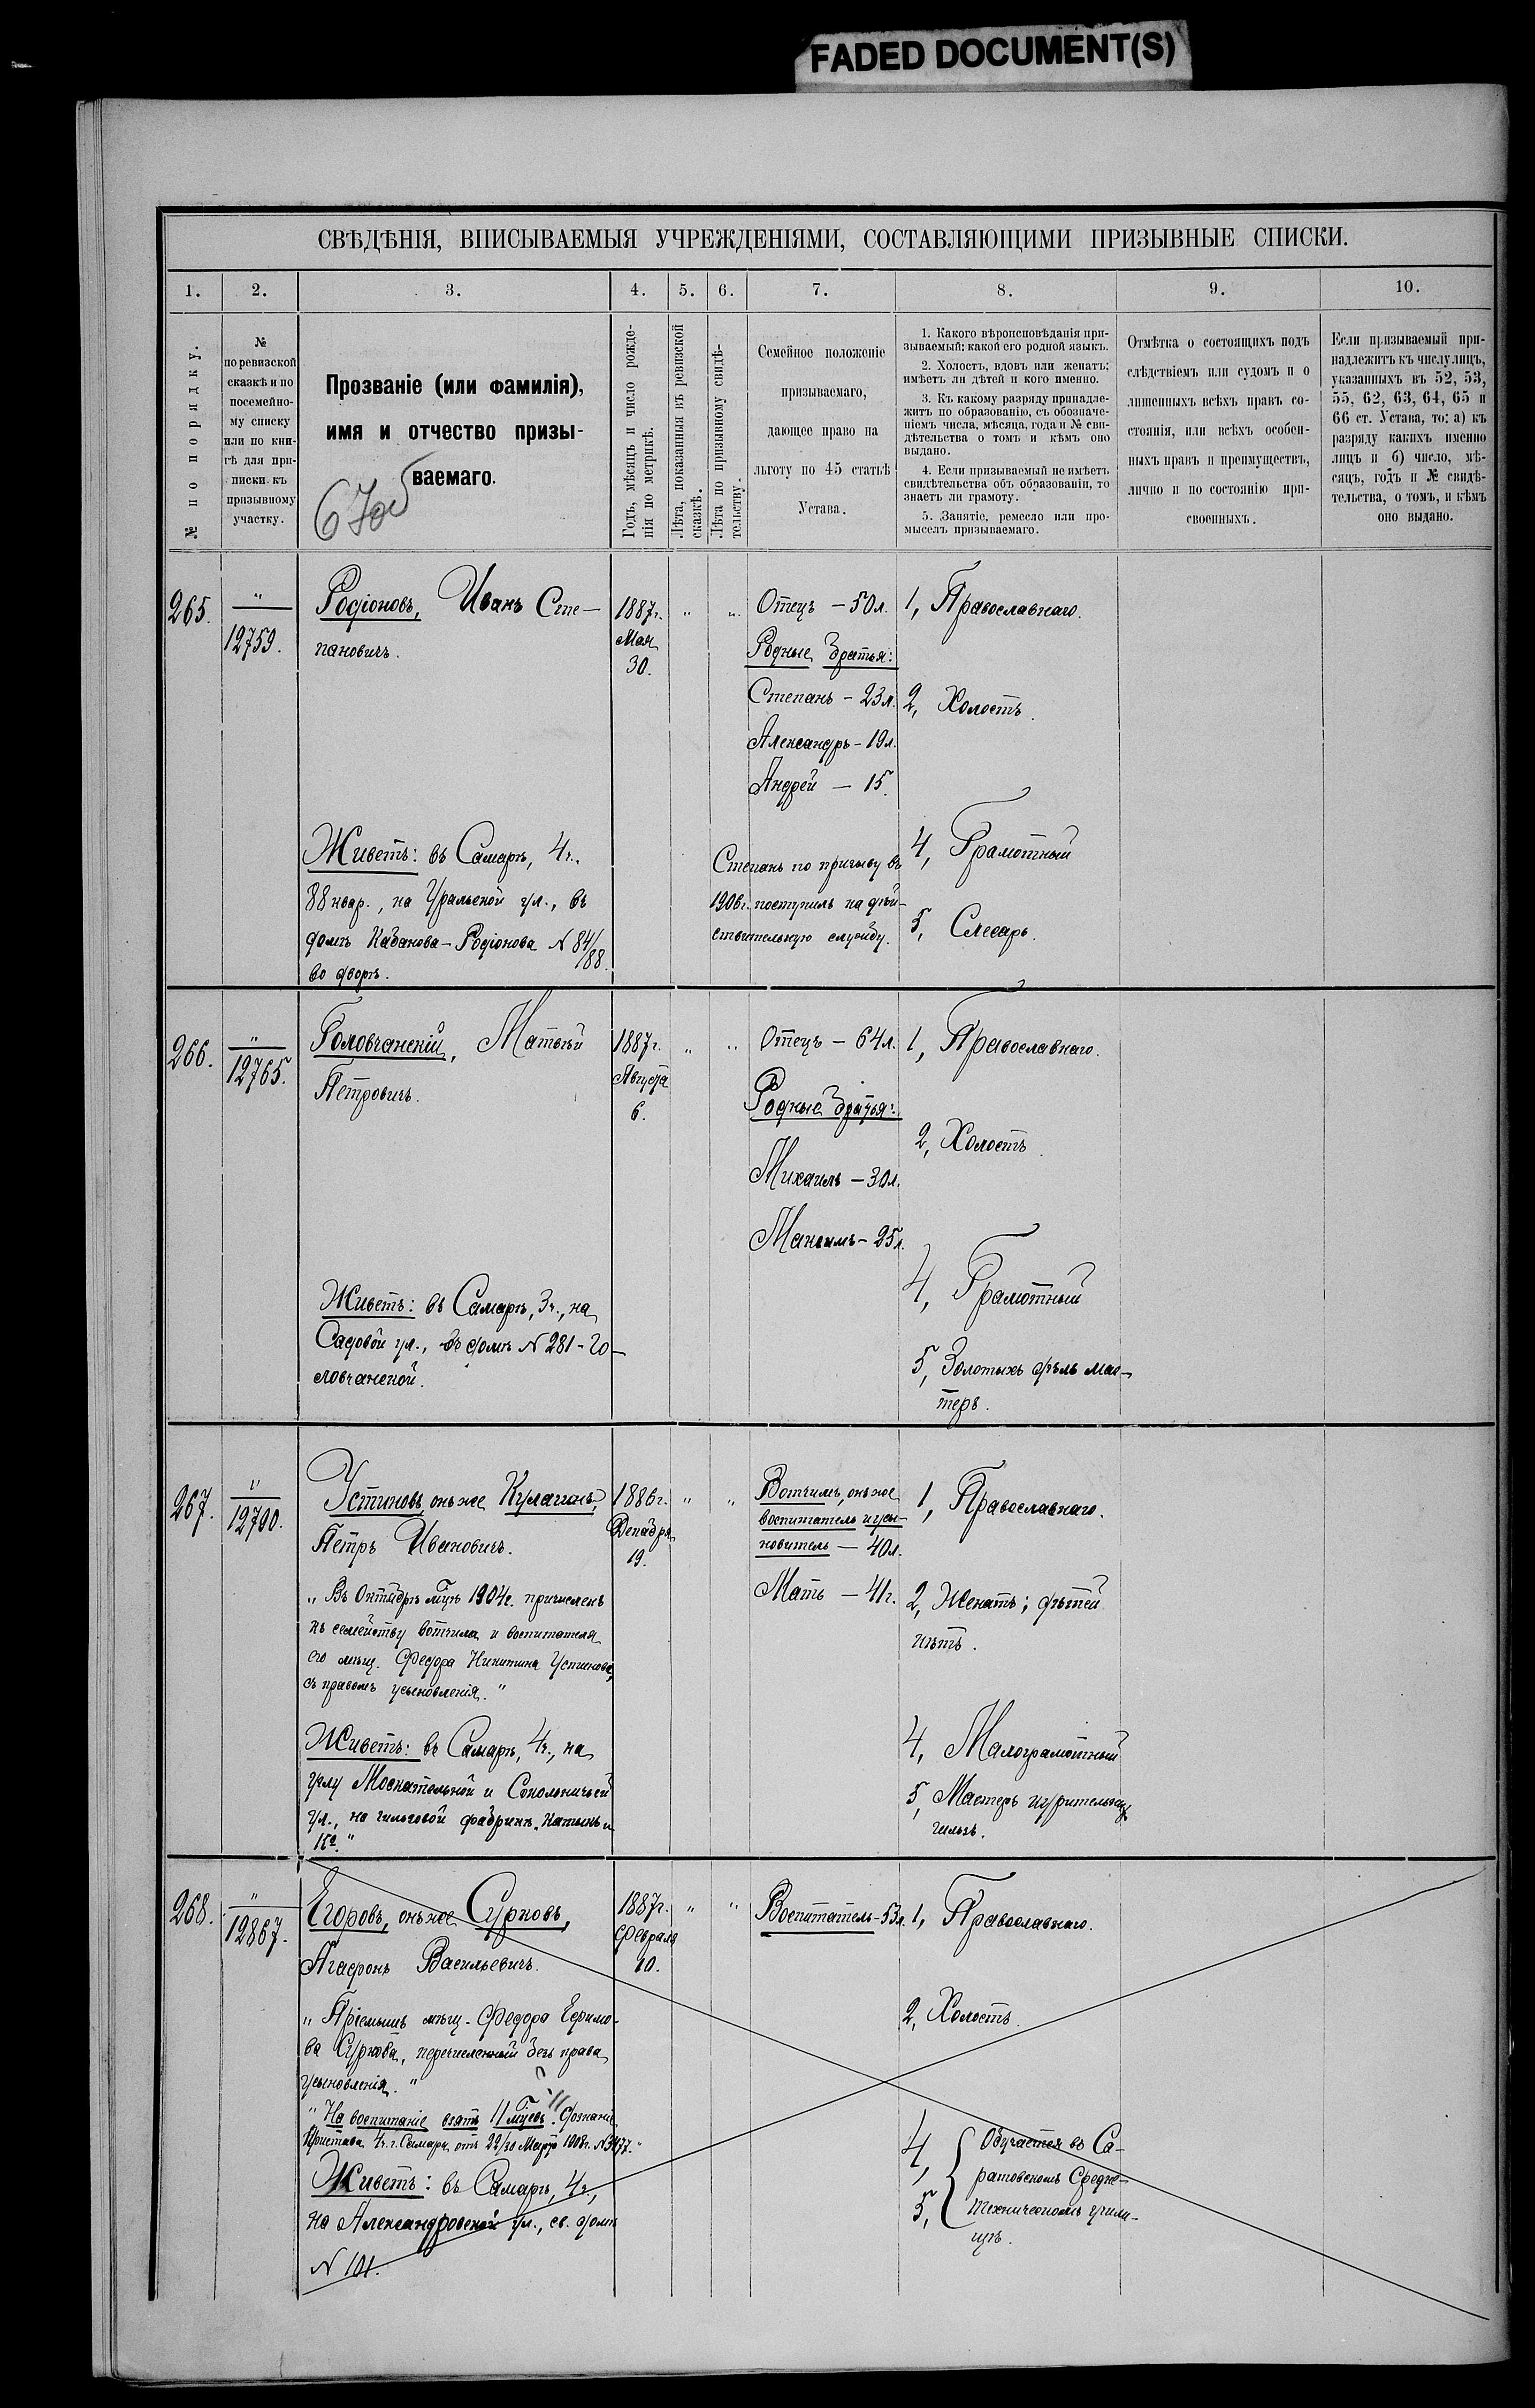 FADED DOCUMENT(S)
СВѢДѢНІЯ, ВПИСЫВАЕМЫЯ УЧРЕЖДЕНІЯМИ, СОСТАВЛЯЮЩИМИ ПРИЗЫВНЫЕ СПИСКИ.
1. 2. 3. 4. 5. 6. 7. 8. 9. 10.
№ по порядку.
№
по ревизской
сказкѣ и по
посемейно-
му списку
или по кни-
гѣ для при-
писки къ
призывному
участку.
Прозваніе (или фамилія),
имя и отчество призы-
ваемаго.
Годъ, мѣсяцъ и число рожде-
нія по метрикѣ.
Лѣта, показанныя въ ревизской
сказкѣ.
Лѣта по призывному свидѣ-
тельству.
Семейное положеніе
призываемаго,
дающее право на
льготу по 45 статьѣ
Устава.
1. Какого вѣроисповѣданія при-
зываемый; какой его родной языкъ.
2. Холостъ, вдовъ или женатъ;
имѣетъ ли дѣтей и кого именно.
3. Къ какому разряду принадле-
житъ по образованію, съ обозначе-
ніемъ числа, мѣсяца, года и № сви-
дѣтельства о томъ и кѣмъ оно
выдано.
4. Если призываемый не имѣетъ
свидѣтельства объ образованіи, то
знаетъ ли грамоту.
5. Занятіе, ремесло или про-
мыселъ призываемаго.
Отмѣтка о состоящихъ подъ
слѣдствіемъ или судомъ и о
лишенныхъ всѣхъ правъ со-
стоянія, или всѣхъ особен-
ныхъ правъ и преимуществъ,
лично и по состоянію при-
своенныхъ.
Если призываемый при-
надлежитъ къ числу лицъ,
указанныхъ въ 52, 53,
55, 62, 63, 64, 65 и
66 ст. Устава, то: а) къ
разряду какихъ именно
лицъ и б) число, мѣ-
сяцъ, годъ и № свидѣ-
тельства, о томъ, и кѣмъ
оно выдано.
265.
"
12759.
Родіоновъ, Иванъ Сте-
пановичъ.
Живетъ: въ Самарѣ, 4ч.,
88 квар., на Уральской ул., въ
домѣ Кабанова-Родіонова N 84/88.
во дворѣ.
1887г.
Мая
30.
" "
Отецъ - 50л.
Родные братья:
Степанъ - 23л.
Александръ - 19л.
Андрей - 15.
Степанъ по призыву въ
1906г. поступилъ на дѣй-
ствительную службу.
1, Православнаго.
2, Холостъ.
4, Грамотный
5, Слесарь.
266.
"
12765.
Головчанскій, Матвѣй
Петровичъ.
Живетъ: въ Самарѣ, 3ч., на
Садовой ул., въ домѣ N 281 - Го-
ловчанской.
1887г.
Августа
6.
" "
Отецъ - 64л.
Родные братья:
Михаилъ - 30л.
Максимъ - 25л.
1, Православнаго.
2, Холостъ.
4, Грамотный
5, Золотыхъ дѣлъ мас-
теръ.
267.
"
12790.
Устиновъ, онъ же Кулагинъ,
Петръ Ивановичъ.
"Въ Октябрѣ мцѣ 1904г. причисленъ
къ семейству вотчима и воспитателя
его мѣщ. Федора Никитина Устинова,
съ правомъ усыновленія."
Живетъ: въ Самарѣ, 4ч., на
углу Москательной и Сокольничьей
ул., на гильзовой фабрикѣ "Катыкъ и
Ко."
1886г.
Декабря
19.
" "
Вотчимъ, онъ же
воспитатель и усы-
новитель - 40л.
Мать - 41г.
1, Православнаго.
2, Женатъ; дѣтей
нѣтъ.
4, Малограмотный
5, Мастеръ курительныхъ
гильзъ.
268.
"
12867.
Егоровъ, онъ же Сурковъ,
Агафонъ Васильевичъ.
"Пріемышъ мѣщ. Федора Ефимо-
ва Суркова, перечисленный безъ права
усыновленія."
"На воспитаніе взятъ 11 мѣцевъ. Дознаніе
Пристава 4ч. г. Самары отъ 22/30 Марта 1908г. N 3477."
Живетъ: въ Самарѣ, 4ч.,
на Александровской ул., св. домъ
N 101.
1887г.
Февраля
10.
" "
Воспитатель - 53л.
1, Православнаго.
2, Холостъ.
4,
5,
Обучается въ Са-
ратовскомъ Средне-
техническомъ учили-
щѣ.